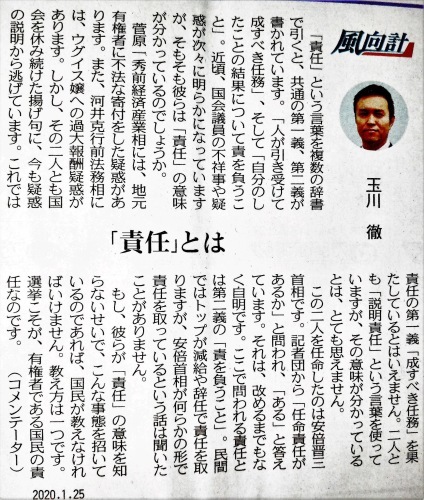 風向計
玉川 徹
「責任」とは
「責任」という言葉を複数の辞書
で引くと、共通の第一義、第二義が
書かれています。「人が引き受けて
成すべき任務」、そして「自分のし
たことの結果について責を負うこ
と」。近頃、国会議員の不祥事や疑
惑が次々に明らかになっています
が、そもそも彼らは「責任」の意味
が分かっているのでしょうか。
菅原一秀前経済産業相には、地元
有権者に不法な寄付をした疑惑があ
ります。また、河井克行前法務相に
は、ウグイス嬢への過大報酬疑惑が
あります。しかし、その二人とも国
会を休み続けた揚げ句に、今も疑惑
の説明から逃げています。これでは
責任の第一義「成すべき任務」を果
たしているとはいえません。二人と
も「説明責任」という言葉を使って
いますが、その意味が分かっている
とは、とても思えません。
この二人を任命したのは安倍晋三
首相です。記者団から「任命責任が
あるか」と問われ、「ある」と答え
ています。それは、改めるまでもな
く自明です。ここで問われる責任と
は第二義の「責を負うこと」。民間
ではトップが減給や辞任で責任を取
りますが、安倍首相が何らかの形で
責任を取っているという話は聞いた
ことがありません。
もし、彼らが「責任」の意味を知
らないせいで、こんな事態を招いて
いるのであれば、国民が教えなけれ
ばいけません。教え方は一つです。
選挙こそが、有権者である国民の責
任なのです。 （コメンテーター）
2020.1.25